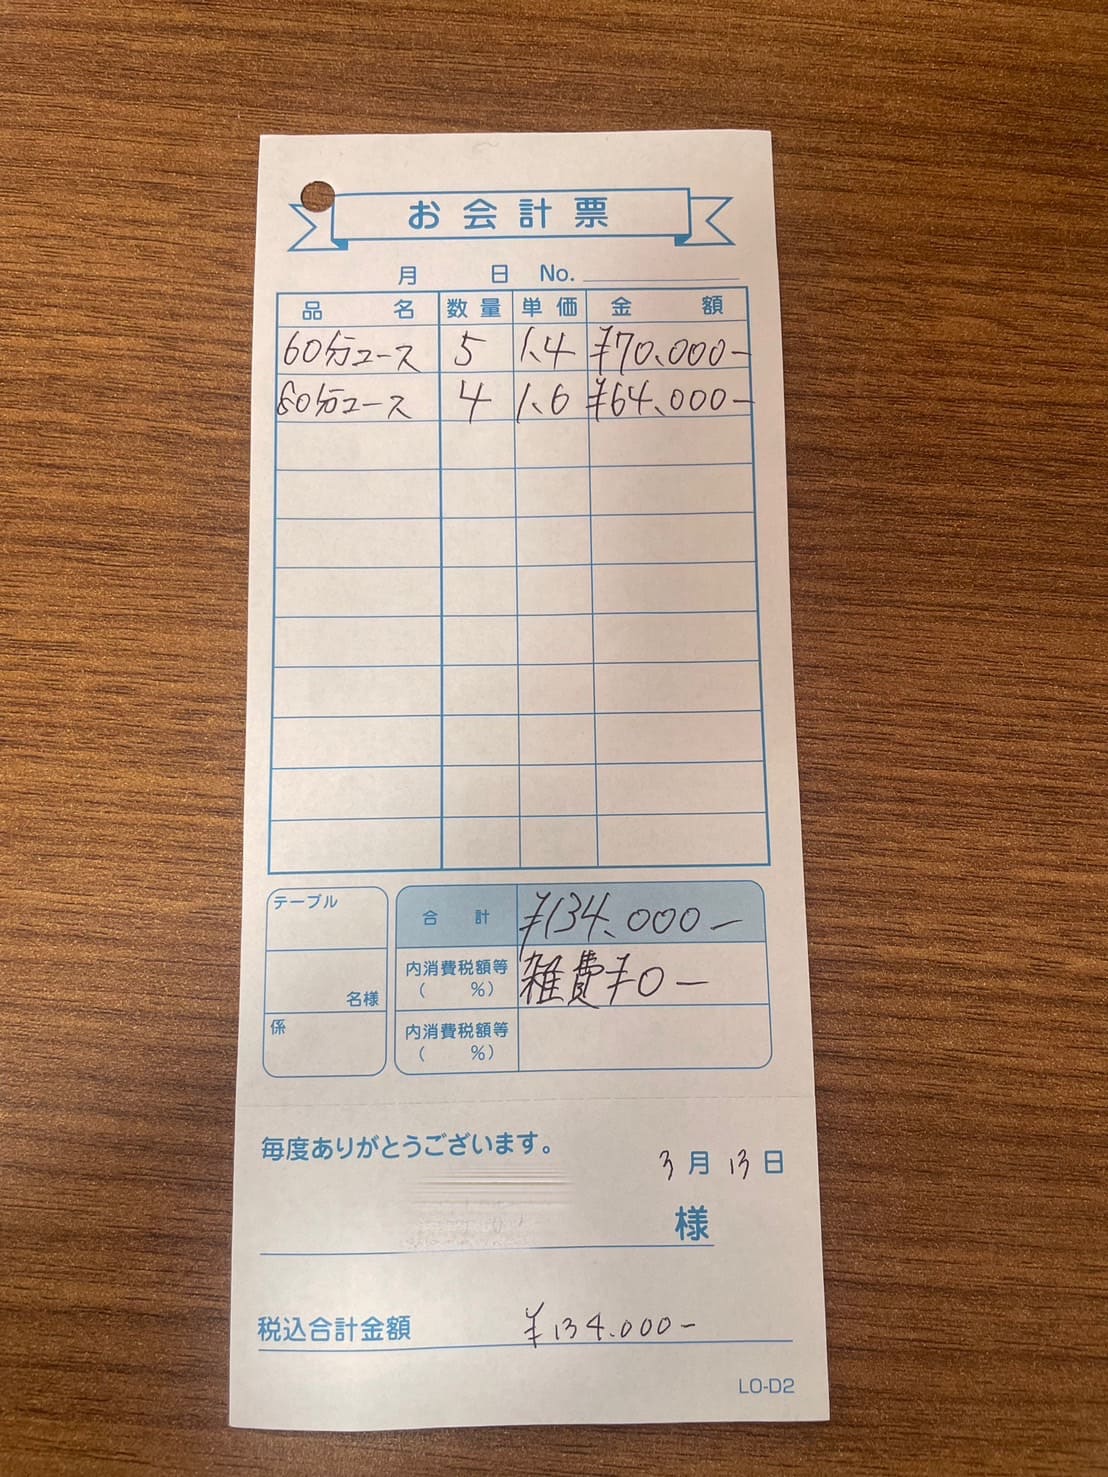 お会計票
月 日 No.
品名 数量 単価 金額
60分コース 5 1.4 ¥70.000-
80分コース 4 1.6 ¥64.000-
テーブル
名様
係
合計 ¥134.000-
内消費税額等 ( %) 雑費¥0-
内消費税額等 ( %)
毎度ありがとうございます。
3月13日
様
税込合計金額 ¥134.000-
LO-D2